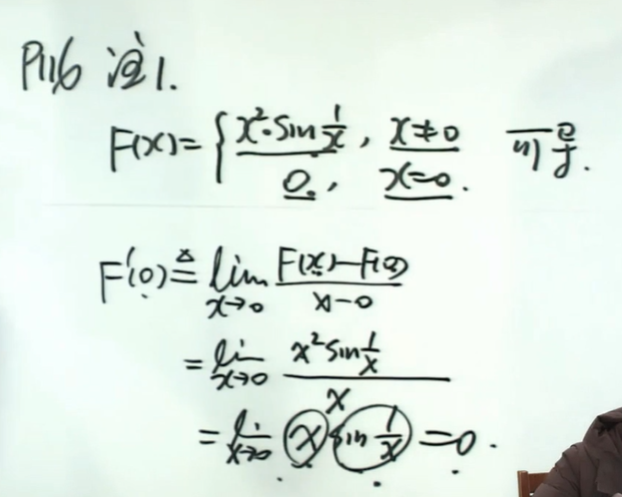 P116 注1.
F(x)={x²·sin 1/x, x≠0 可导.
0, x=0.
F'(0)≜lim x→0 (F(x)-F(0))/(x-0)
=lim x→0 (x² sin 1/x)/x
=li x→0 x sin 1/x =0.